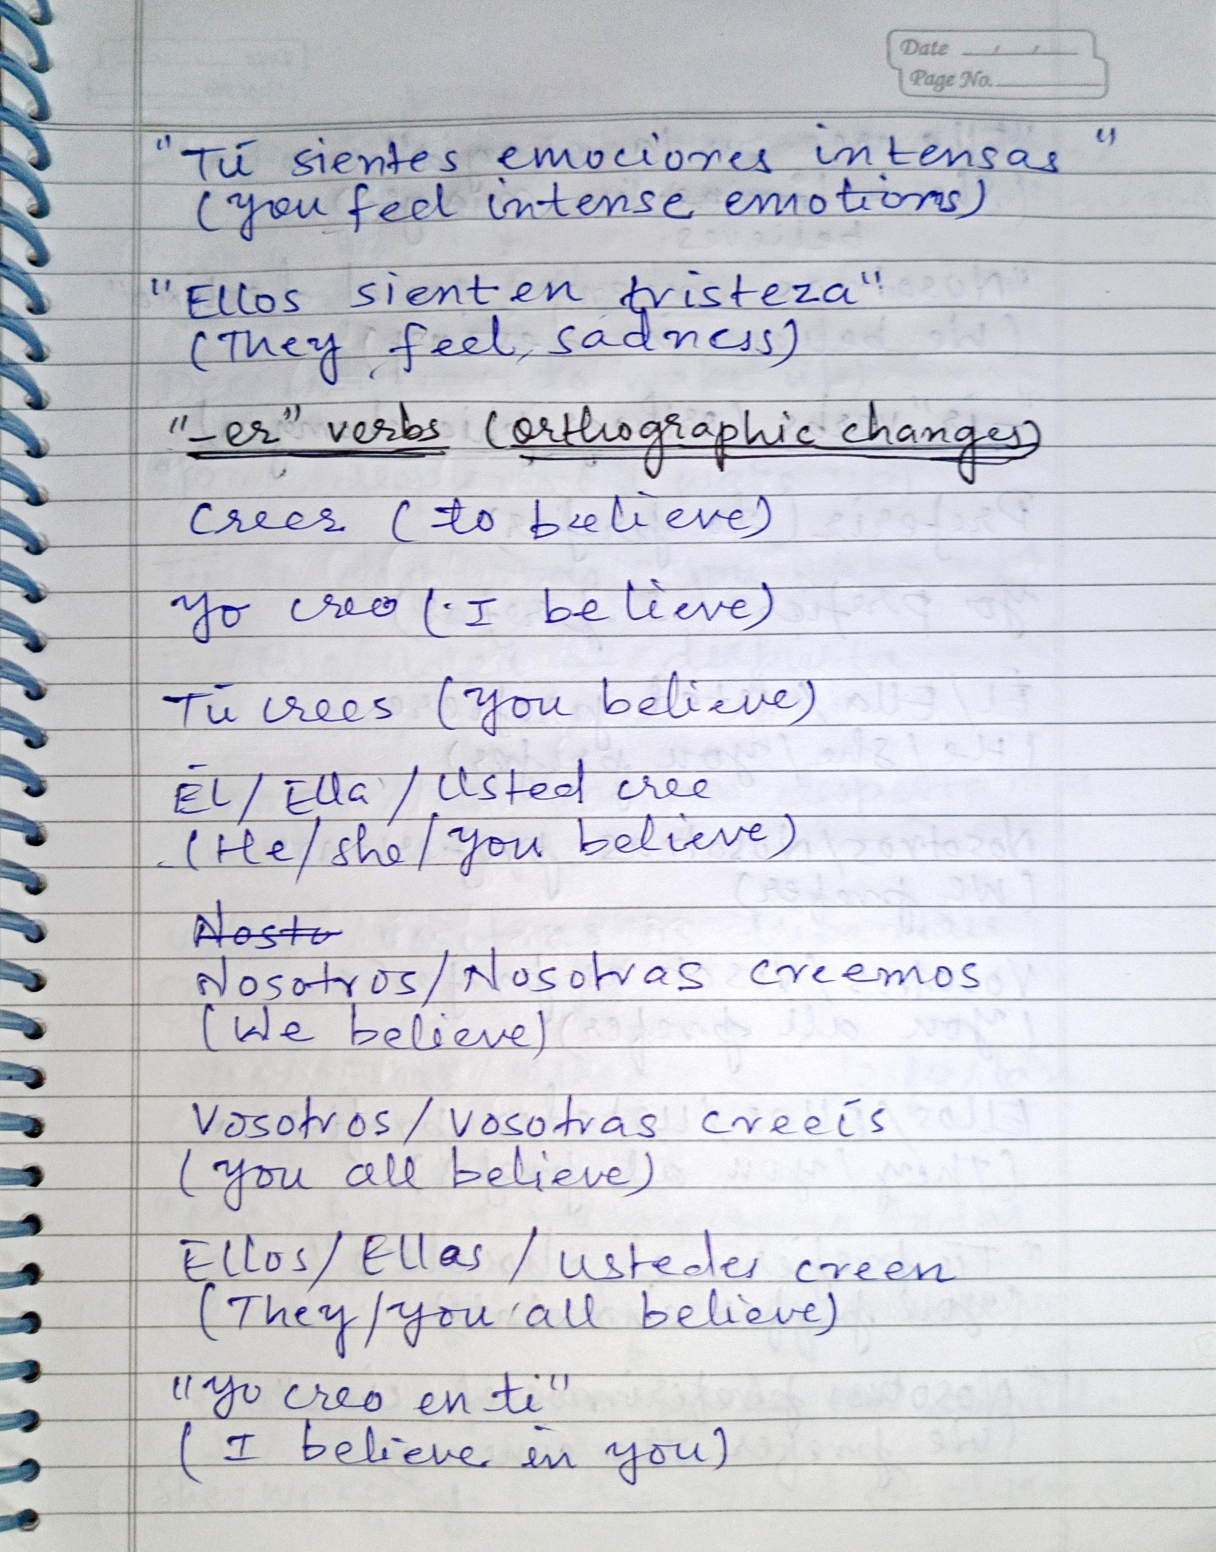 Date
Page No.
"Tú sientes emociones intensas"
(you feel intense emotions)
"Ellos sienten tristeza"
(They feel sadness)
"-er" verbs (orthographic changes)
Creer (to believe)
Yo creo (I believe)
Tú crees (you believe)
Él/Ella/Usted cree
(He/she/you believe)
Nosto
Nosotros/Nosotras creemos
(We believe)
Vosotros/Vosotras creéis
(you all believe)
Ellos/Ellas/Ustedes creen
(They/you all believe)
"Yo creo en ti"
(I believe in you)